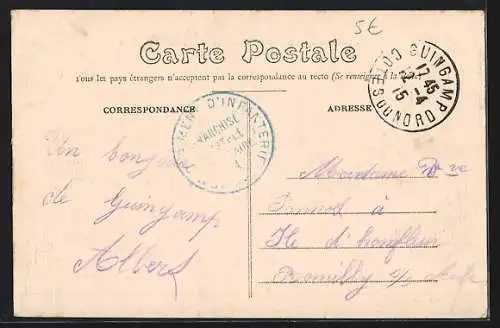 5€
Carte Postale
Tous les pays étrangers n'acceptent pas la correspondance au recto (Se renseigner à la Poste)
CORRESPONDANCE
ADRESSE
GUINGAMP
12 45
12-4
15
COTES DU NORD
REGIMENT D'INFANTERIE
FRANCHISE
Un bonjour
de Guingamp
Albert
Madame Vve
à
Ile d'honfleur
Romilly s/s